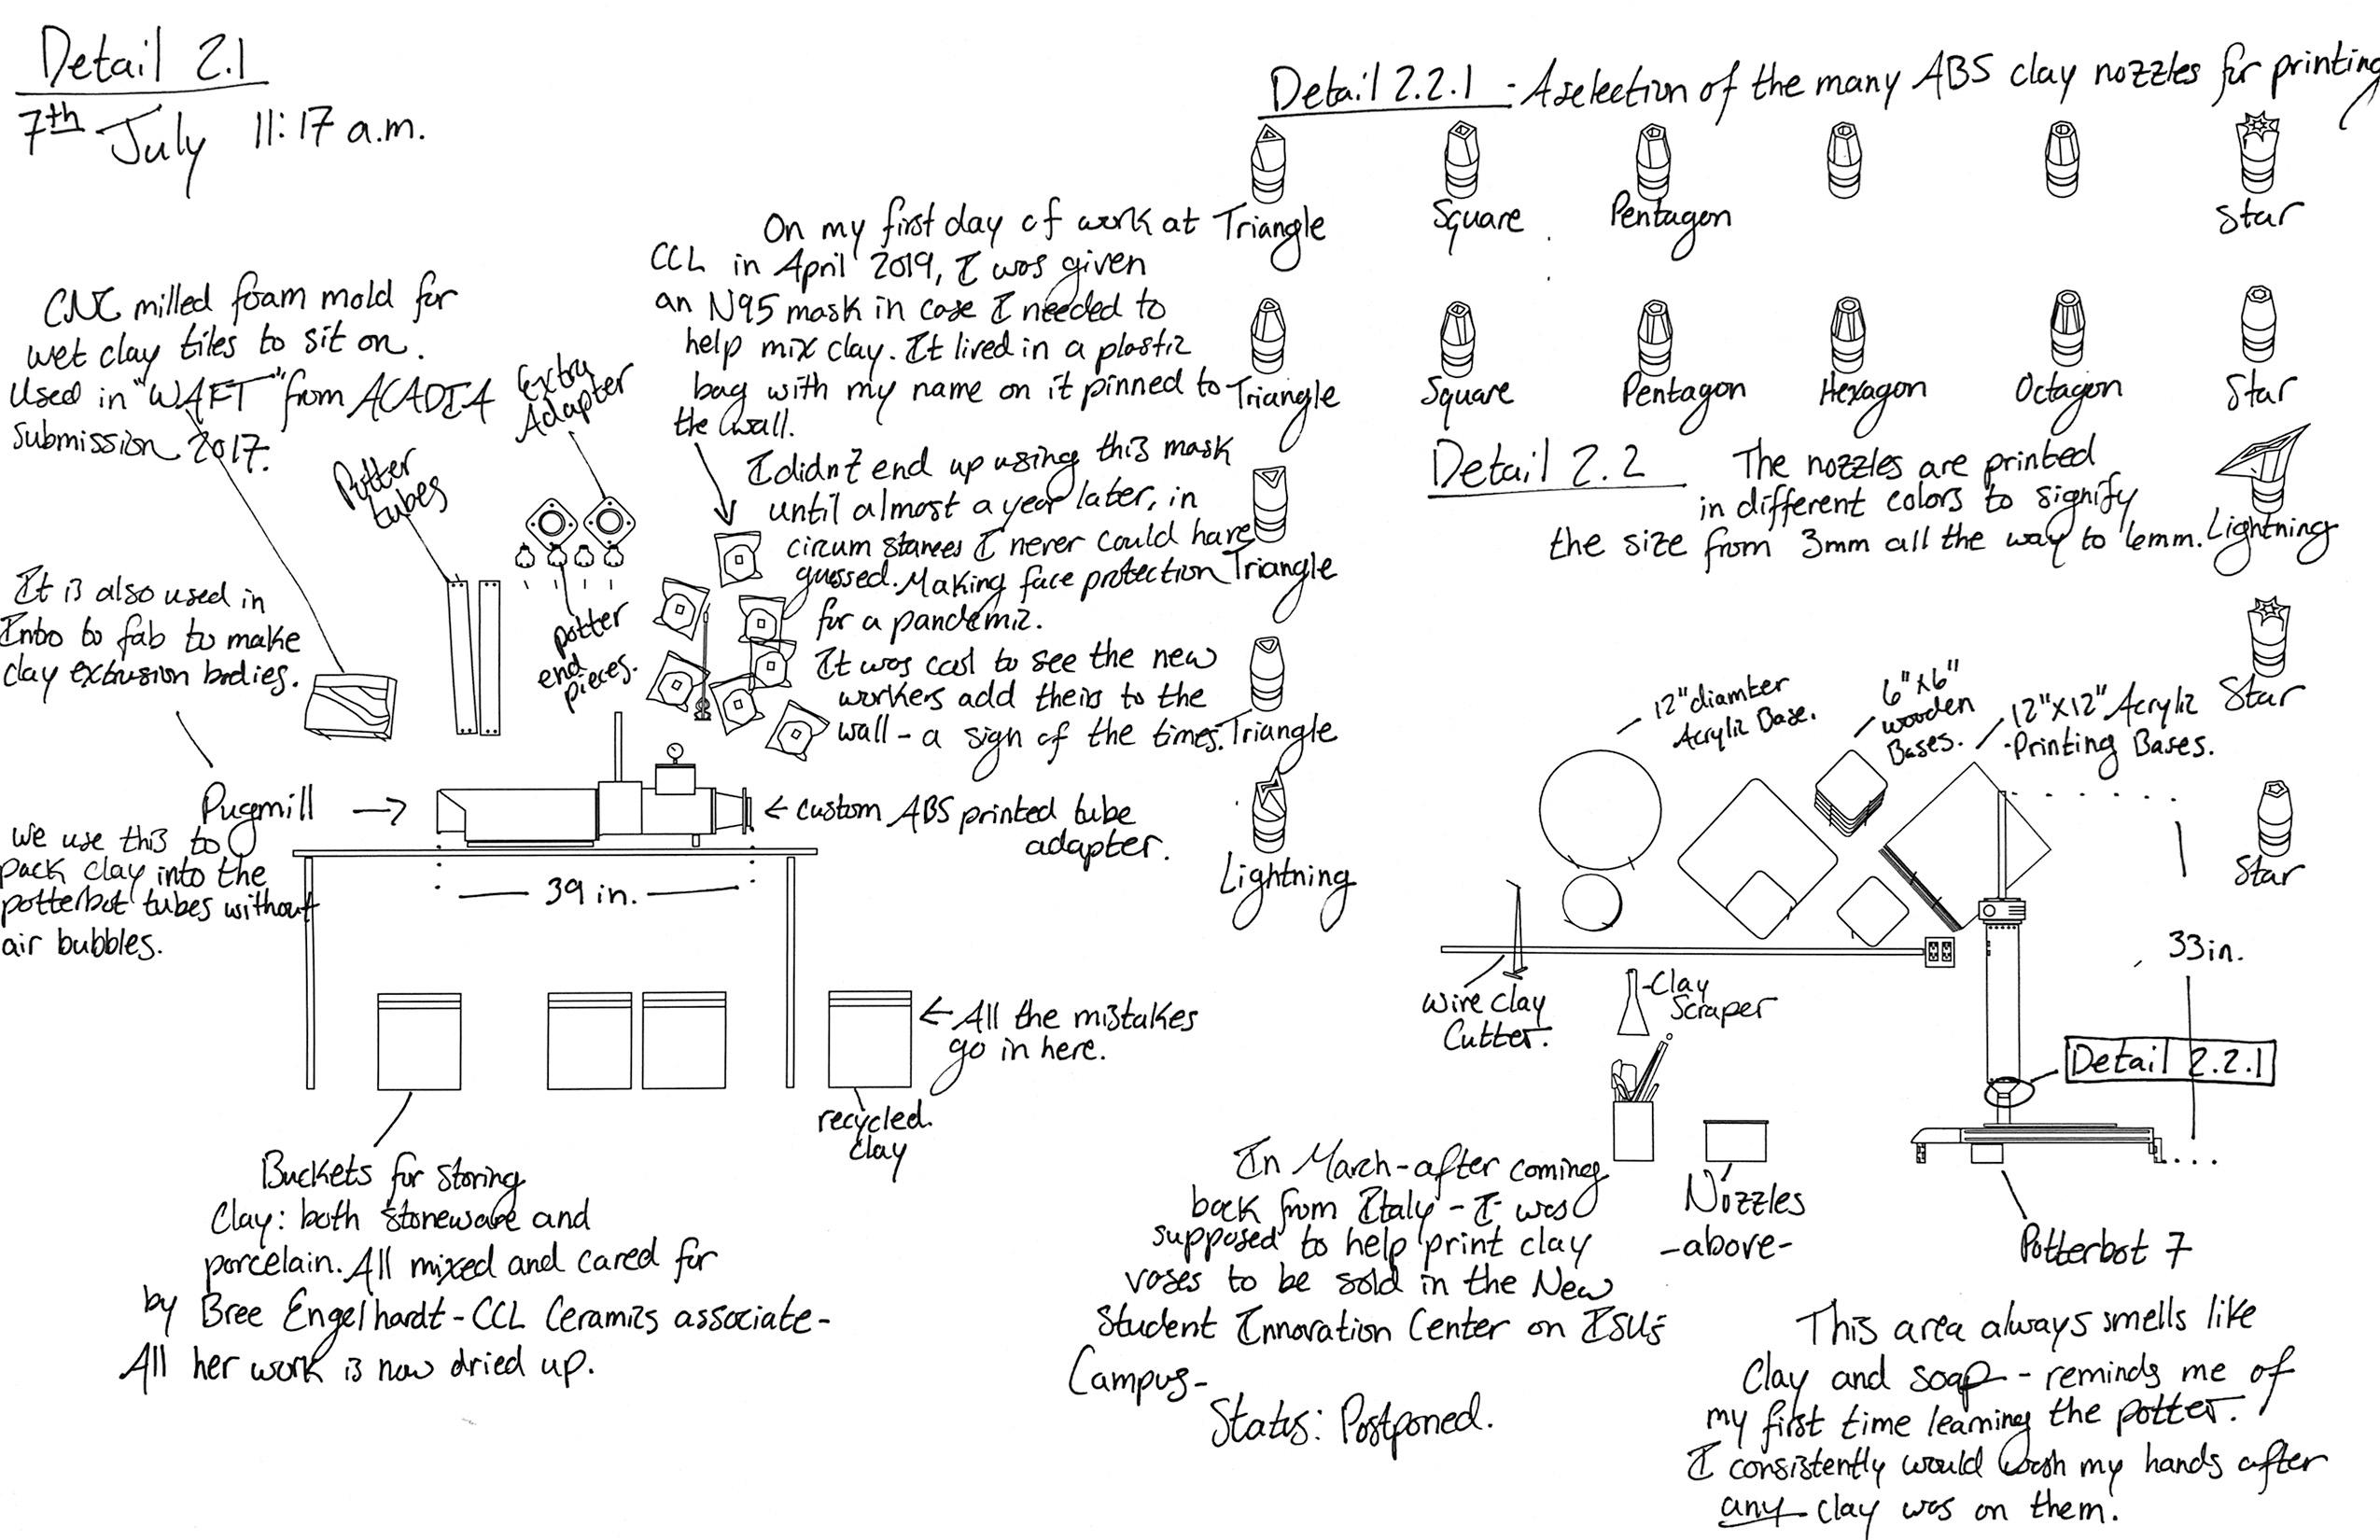 Detail 2.1
7th July 11:17 a.m.
CNC milled foam mold for
wet clay tiles to sit on.
Used in "WAFT" from ACADIA
Submission 2017.
Extra
Adapter
Potter
tubes
potter
end
pieces.
It is also used in
Intro to fab to make
clay extrusion bodies.
Pugmill →
We use this to
pack clay into the
potterbot tubes without
air bubbles.
On my first day of work at
CCL in April 2019, I was given
an N95 mask in case I needed to
help mix clay. It lived in a plastic
bag with my name on it pinned to
the wall.
I didn't end up using this mask
until almost a year later, in
circumstances I never could have
guessed. Making face protection
for a pandemic.
It was cool to see the new
workers add theirs to the
wall - a sign of the times.
← Custom ABS printed tube
adapter.
39 in.
← All the mistakes
go in here.
recycled
clay
Buckets for storing
Clay: both stoneware and
porcelain. All mixed and cared for
by Bree Engelhardt - CCL Ceramics associate -
All her work is now dried up.
Detail 2.2.1 - A selection of the many ABS clay nozzles for printing
Triangle
Square
Pentagon
Star
Triangle
Square
Pentagon
Hexagon
Octagon
Star
Triangle
Lightning
Triangle
Star
Lightning
Star
Detail 2.2
The nozzles are printed
in different colors to signify
the size from 3mm all the way to 6mm.
12" diamter
Acrylic Base.
6"x6"
wooden
Bases.
12"x12" Acrylic
Printing Bases.
33in.
Wire Clay
Cutter.
Clay
Scraper
Detail 2.2.1
Nozzles
-above-
Potterbot 7
In March - after coming
back from Italy - I was
supposed to help print clay
vases to be sold in the New
Student Innovation Center on ISU's
Campus -
Status: Postponed.
This area always smells like
Clay and soap - reminds me of
my first time learning the potter.
I consistently would wash my hands after
any clay was on them.